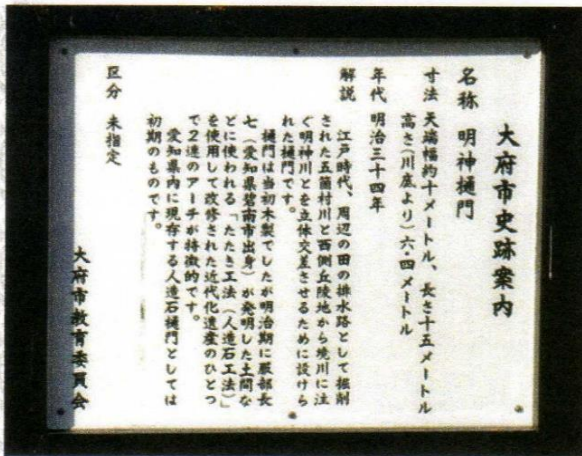 大府市史跡案内
名称 明神樋門
寸法 天端幅約十メートル、長さ十五メートル
高さ(川底より)六・四メートル
年代 明治三十四年
解説 江戸時代、周辺の田の排水路として掘削
された五箇村川と西側丘陵地から境川に注
ぐ明神川とを立体交差させるために設けら
れた樋門です。
樋門は当初木製でしたが明治期に服部長
七(愛知県碧南市出身)が発明した土間な
どに使われる「たたき工法(人造石工法)」
を使用して改修された近代化遺産のひとつ
で2連のアーチが特徴的です。
愛知県内に現存する人造石樋門としては
初期のものです。
区分 未指定
大府市教育委員会